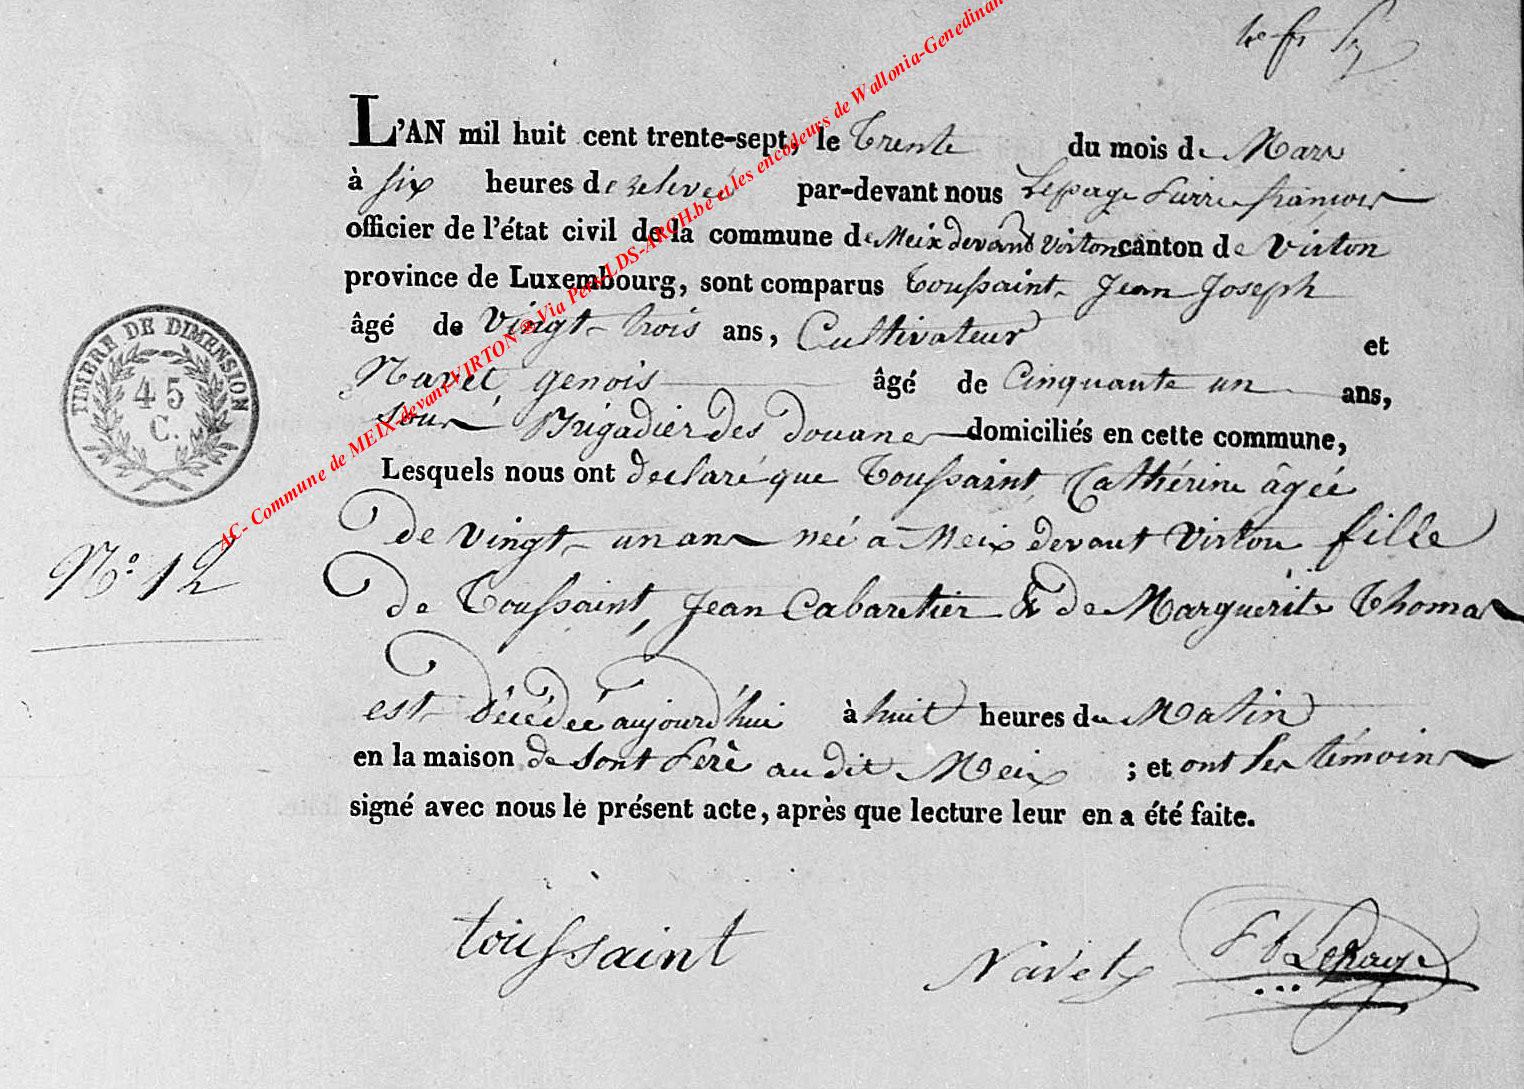 L'AN mil huit cent trente-sept, le Trente du mois de Mars
à six heures de relevée par-devant nous Lepage Pierre françois
officier de l'état civil de la commune de Meix devant Virton canton de Virton
province de Luxembourg, sont comparus Toussaint Jean Joseph
âgé de Vingt-trois ans, Cultivateur et
Navet, genois âgé de Cinquante un ans,
Sous Brigadier des douanes domiciliés en cette commune,
Lesquels nous ont déclaré que Toussaint, Cathérine âgée
De vingt-un ans née a Meix devant Virton fille
De Toussaint, Jean Cabaretier & de Marguerite Thomas
est décédée aujourd'hui à huit heures du Matin
en la maison de sont Perè au dit Meix ; et ont les témoins
signé avec nous le présent acte, après que lecture leur en a été faite.
TIMBRE DE DIMENSION
45
C.
N.° 12
toussaint
Navet
LePage
AC- Commune de MEIX-devant-VIRTON ® Via Pers LDS-ARCH.be et les encodeurs de Wallonia-Genedinan